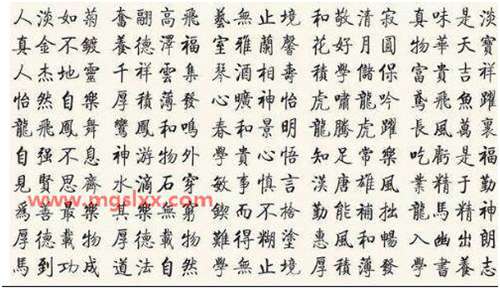 人淡如菊 奮翮高飛 藝無止境 和敬清寂 真味是淡
真金不鍍 養德澤福 室雅蘭馨 花好月圓 物華天寶
人杰地靈 千祥雲集 琴酒相壽 學儲 富貴吉祥
怡然自樂 厚積薄發 心曠神怡 虎嘯龍吟 鳶飛魚躍
龍飛鳳舞 鸞鳳和鳴 春和景明 龍騰虎躍 長風萬裏
自强不息 神游物外 學貴心悟 知足常樂 吃虧是福
見賢思齊 水滴石穿 敏事慎言 漢唐雄風 業精于勤
www.mgslxx.com
為善最樂 其樂無窮 鍥而不捨 勤能補拙 龍馬精神
厚德載物 難得糊塗 惠風和暢 入幽出朗
馬到功成 道法自然 學無止境 厚積薄發 學書養志